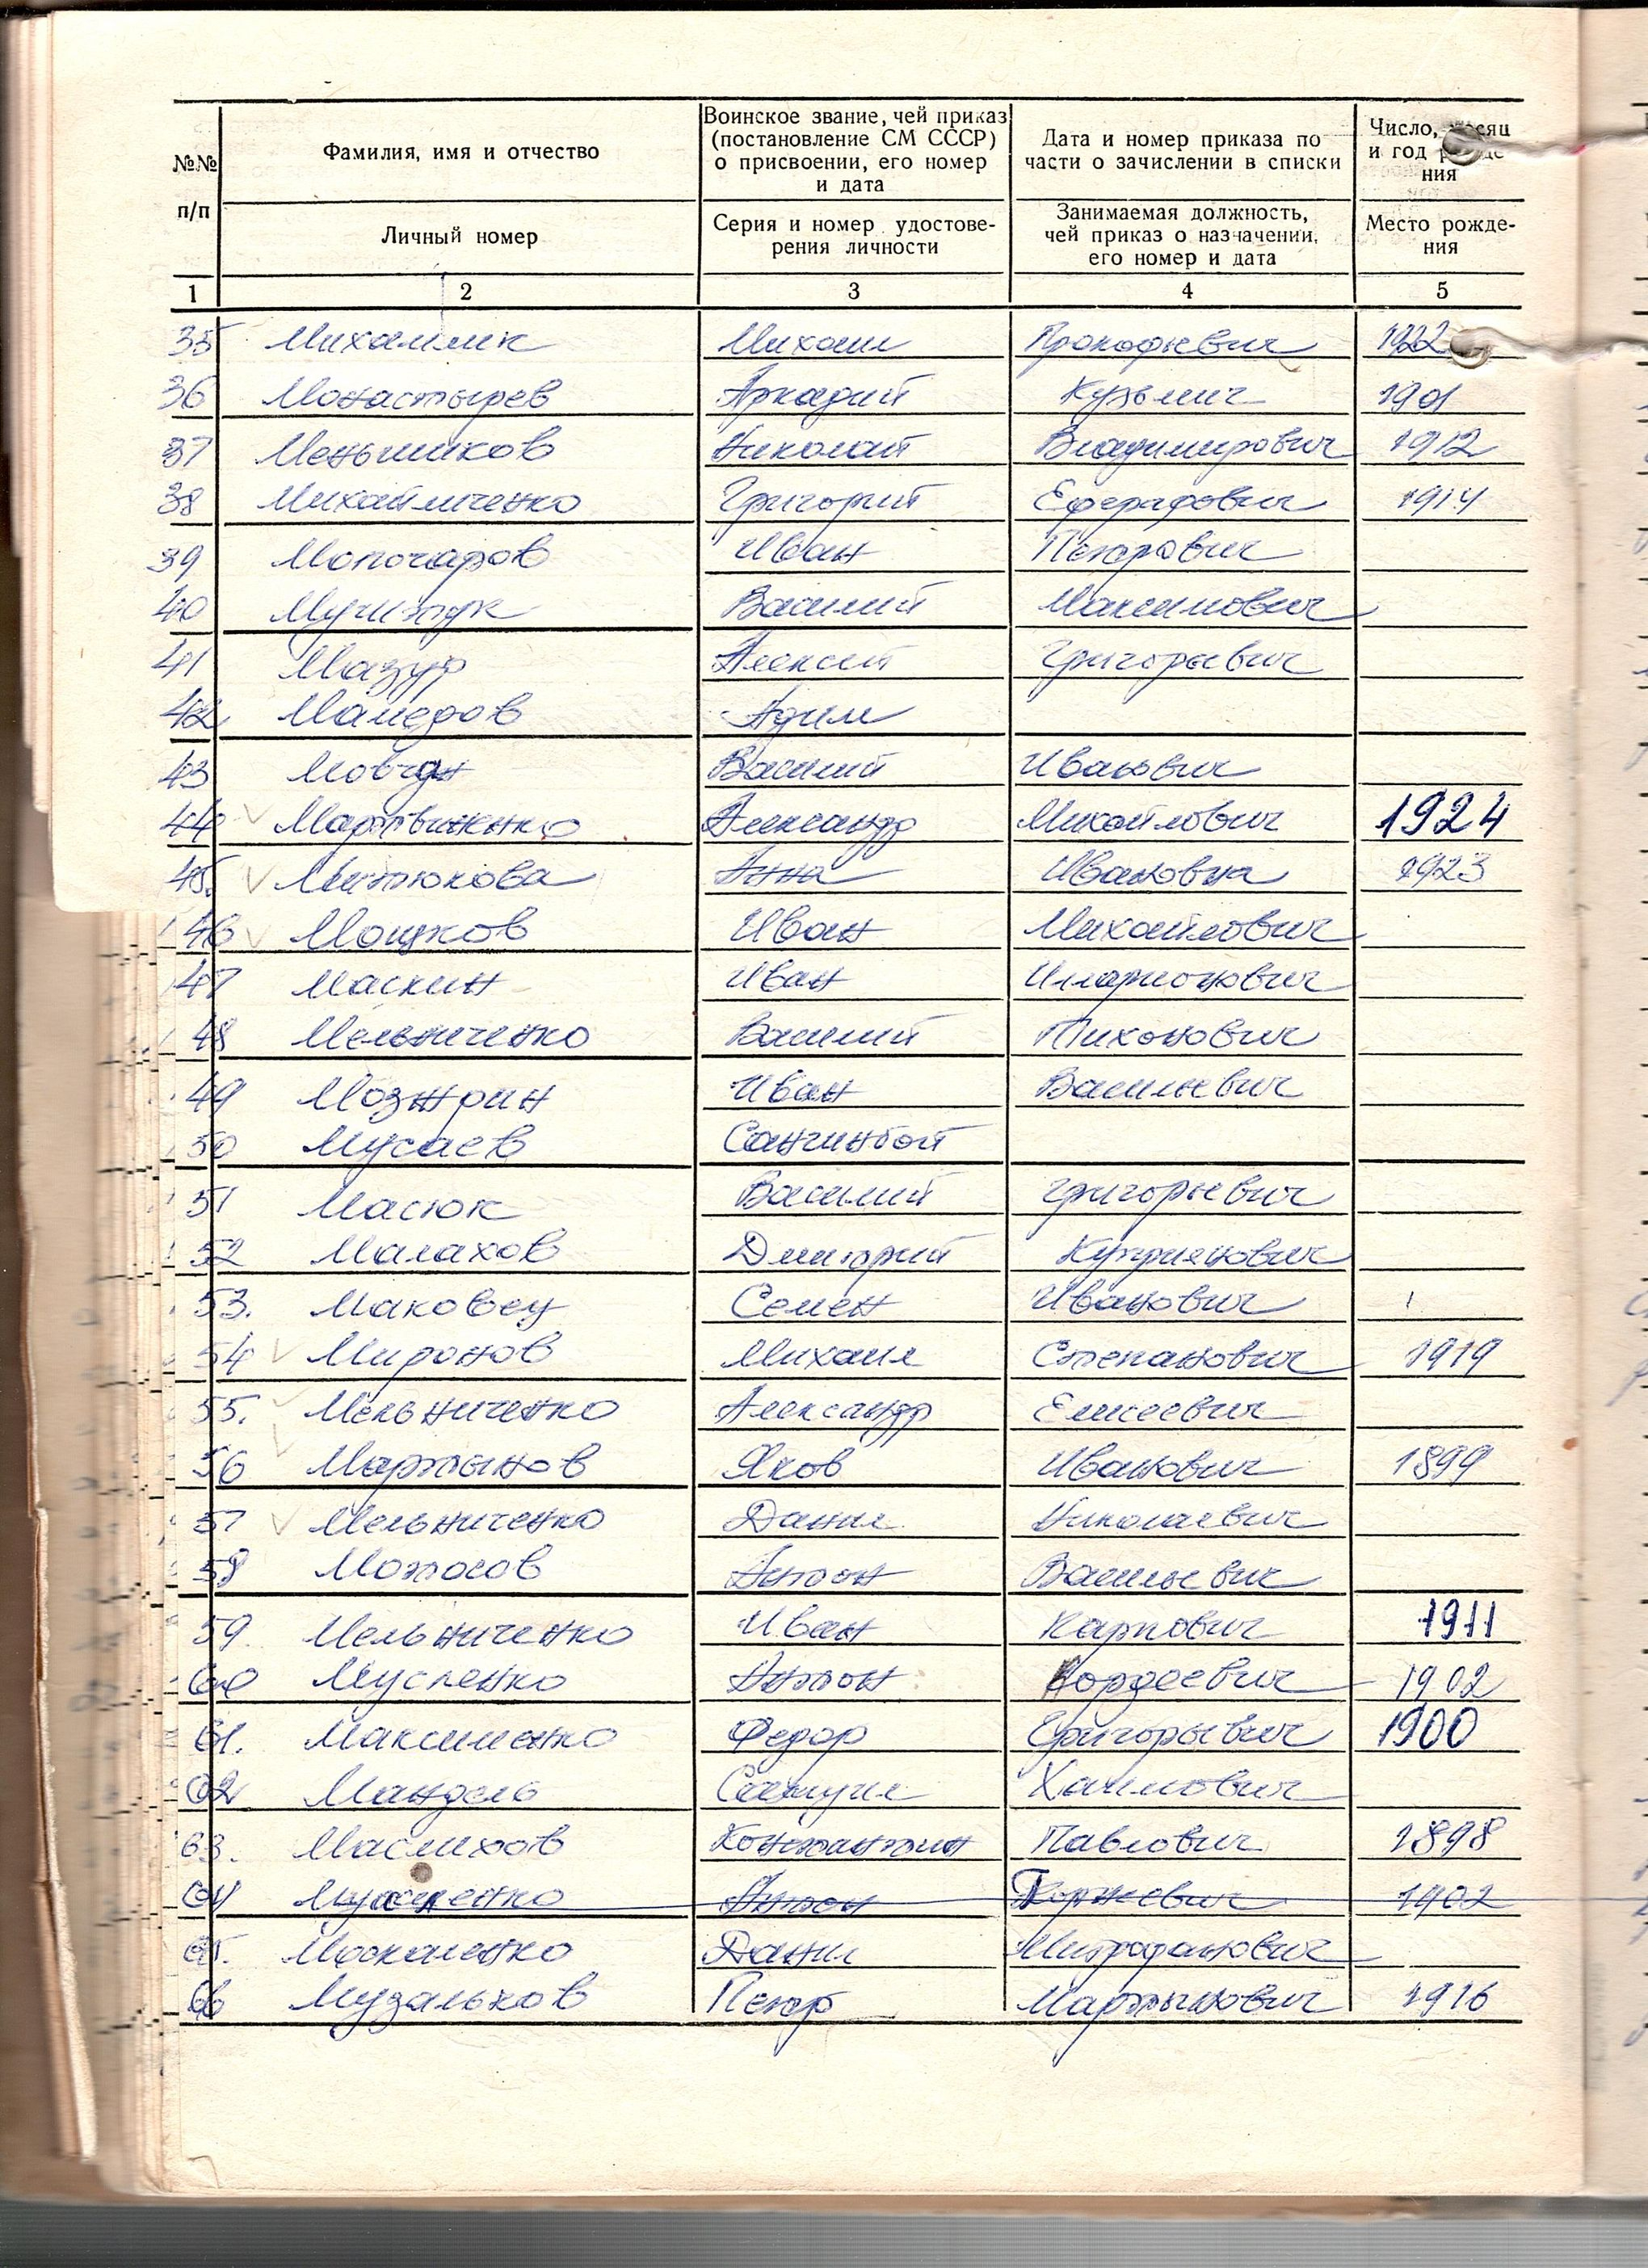 №№ п/п
Фамилия, имя и отчество
Личный номер
Воинское звание, чей приказ
(постановление СМ СССР)
о присвоении, его номер
и дата
Серия и номер удостове-
рения личности
Дата и номер приказа по
части о зачислении в списки
Занимаемая должность,
чей приказ о назначении,
его номер и дата
Число,
и год
ния
Место рожде-
ния
1 2 3 4 5
35 Михаил Прокофьевич 1922
36 Монастырев Аркадий Кузьмич 1901
37 Меньшиков Николай Владимирович 1912
38 Михайличенко Григорий Еферафович 1914
39 Мопочаров Иван Петрович
40 Василий Максимович
41 Мазур Алексей Григорьевич
42 Мамедов Адил
43 Мовчан Василий Иванович
44 Мартвиненко Александр Михайлович 1924
45. Митюкова Анна Ивановна 1923
46 Мошков Иван Михайлович
47 Маскин Иван Илларионович
48 Мельниченко Василий Тихонович
49 Иван Васильевич
50 Мусаев Сангинбой
51 Масюк Василий Григорьевич
52 Малахов Дмитрий Куприянович
53. Маковец Семен Иванович
54 Миронов Михаил Степанович 1919
55. Мельниченко Александр Елисеевич
56 Мартынов Яков Иванович 1899
57 Мельниченко Данил Николаевич
58 Антон Васильевич
59. Мельниченко Иван Карпович 1911
60 Мусленко Антон Гордеевич 1902
61. Максименко Федор Григорьевич 1900
62 Мандель Самуил Хаимович
63. Маслихов Константин Павлович 1898
64 Антон 1902
65. Москаленко Данил Митрофанович
66 Музальков Петр Мартынович 1916